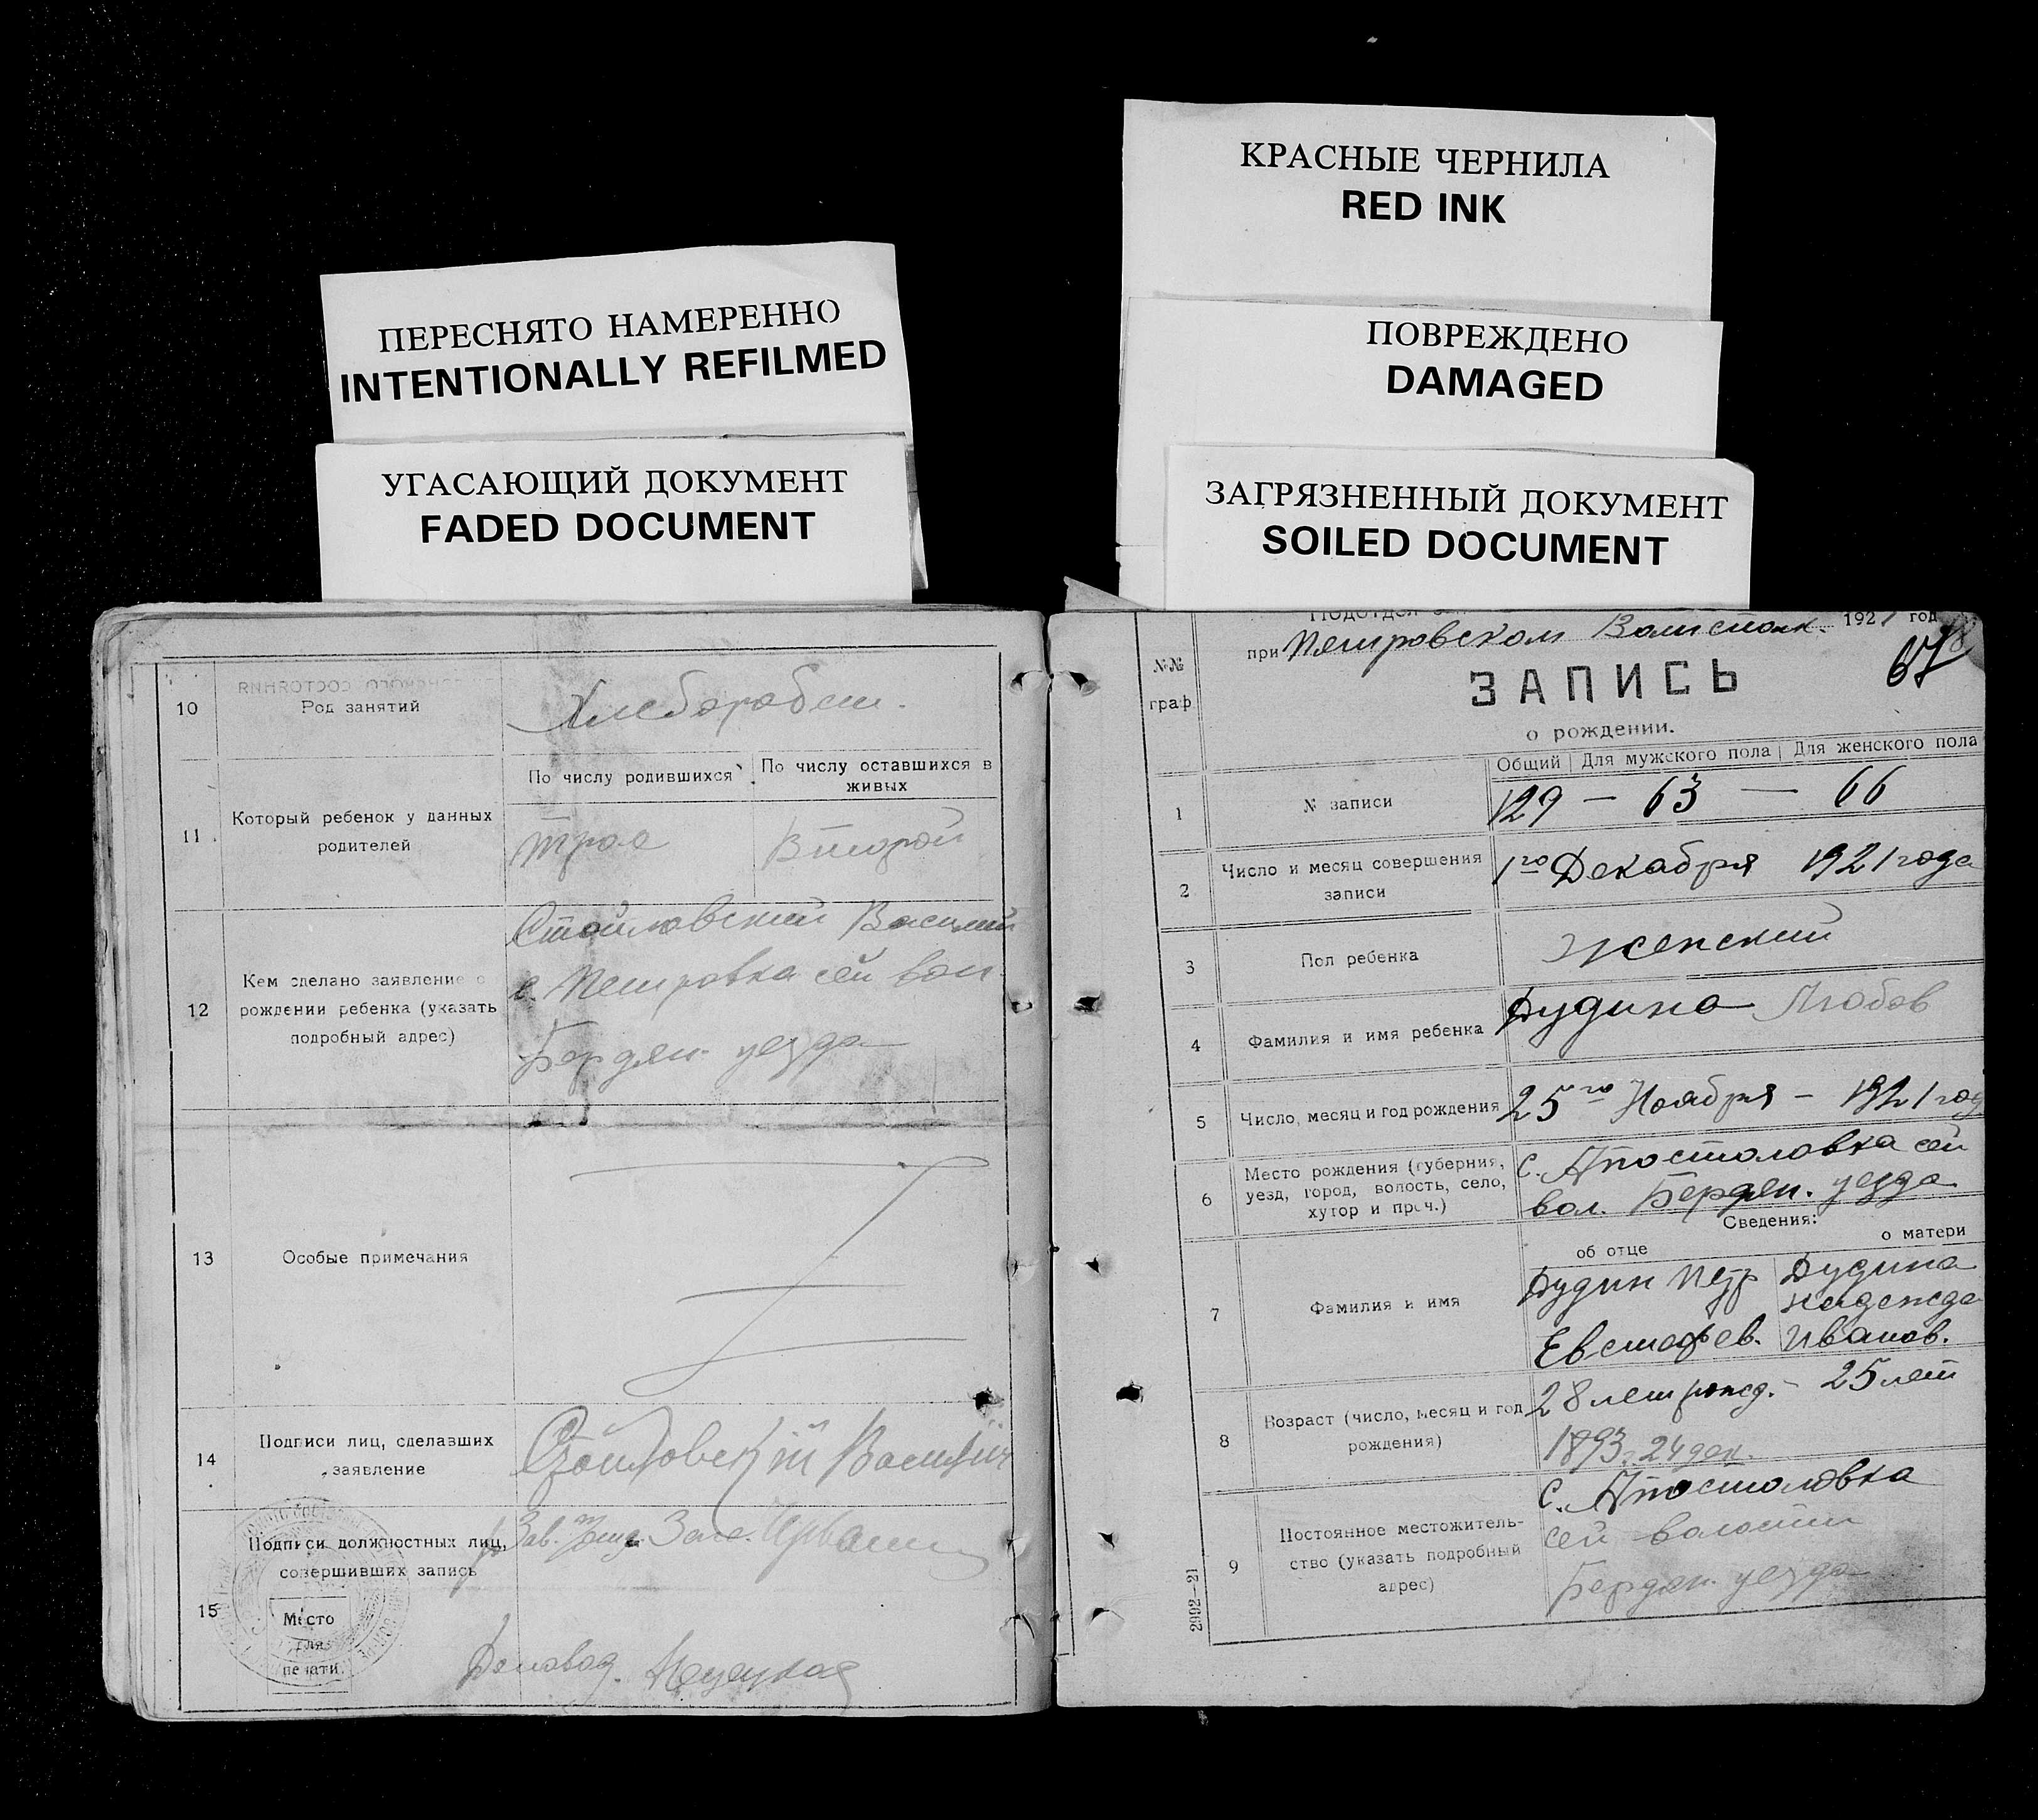 ПЕРЕСНЯТО НАМЕРЕННО
INTENTIONALLY REFILMED
УГАСАЮЩИЙ ДОКУМЕНТ
FADED DOCUMENT
КРАСНЫЕ ЧЕРНИЛА
RED INK
ПОВРЕЖДЕНО
DAMAGED
ЗАГРЯЗНЕННЫЙ ДОКУМЕНТ
SOILED DOCUMENT
10
Род занятий
Хлебороб
11
Который ребенок у данных
родителей
По числу родившихся
По числу оставшихся в
живых
трое
Второй
12
Кем сделано заявление о
рождении ребенка (указать
подробный адрес)
Стойловский Василий
с. Петровка сей вол.
Бердян. уезда
13
Особые примечания
14
Подписи лиц, сделавших
заявление
Стойловский Василий
15
Подписи должностных лиц,
совершивших запись
Зав.
Место
для
печати
Деловод.
№№
граф
Подотдел
1921 год
при Петровском Волисполк.
67
ЗАПИСЬ
о рождении.
Общий
Для мужского пола
Для женского пола
1
№ записи
129 — 63 — 66
2
Число и месяц совершения
записи
1го Декабря 1921 года
3
Пол ребенка
женский
4
Фамилия и имя ребенка
Дудина Любов
5
Число, месяц и год рождения
25го Ноября – 1921 год
6
Место рождения (губерния,
уезд, город, волость, село,
хутор и проч.)
с. Апостоловка сей
вол. Бердян. уезда
Сведения:
об отце
о матери
7
Фамилия и имя
Дудин Петр
Евстафев.
Дудина
Надежда
Иванов.
8
Возраст (число, месяц и год
рождения)
28 лет рожд. – 25 лет
1893. 24 дек.
9
Постоянное местожитель-
ство (указать подробный
адрес)
с. Апостоловка
сей волости
Бердян. уезда
2992—21